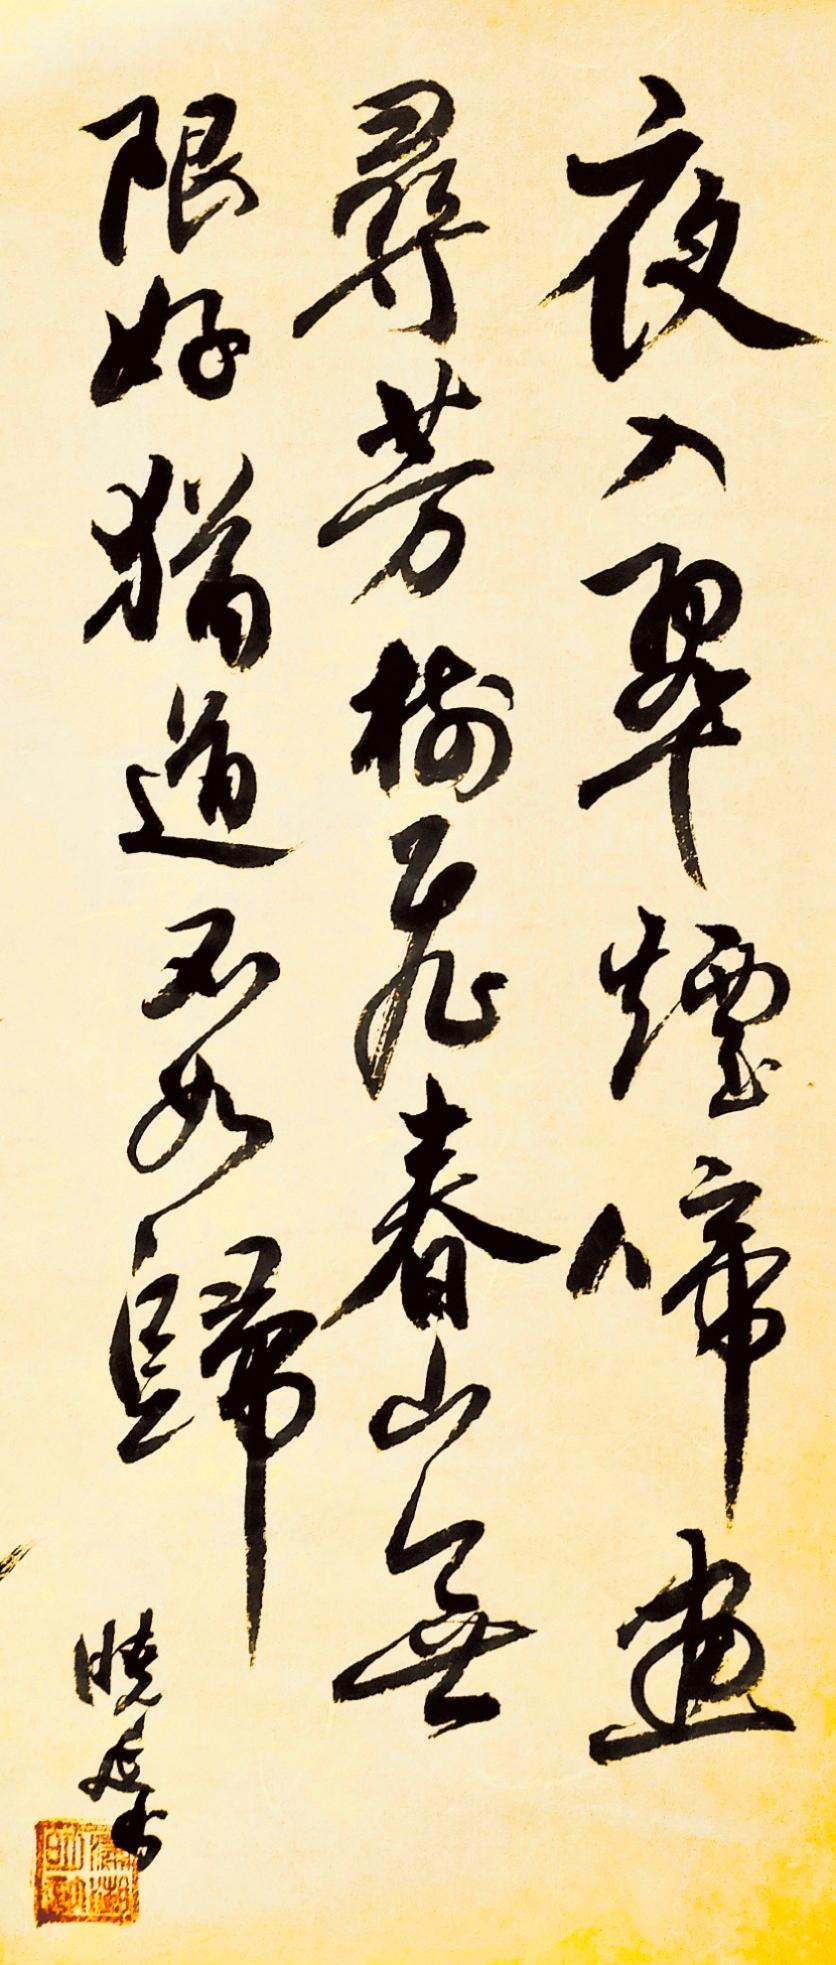 夜入翠煙啼晝
尋芳樹飛春山無
限好猶道不如歸
曉
書